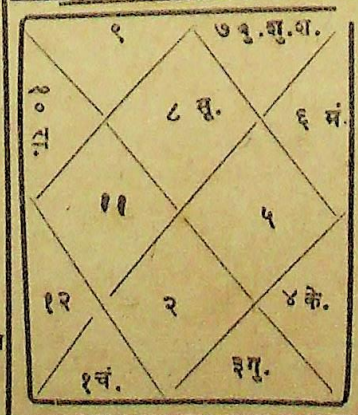 ९ ७ बु.शु.श.
१० रा. ८ सू. ६ मं.
११ ५
१२ २ ४ के.
१चं. ३गु.